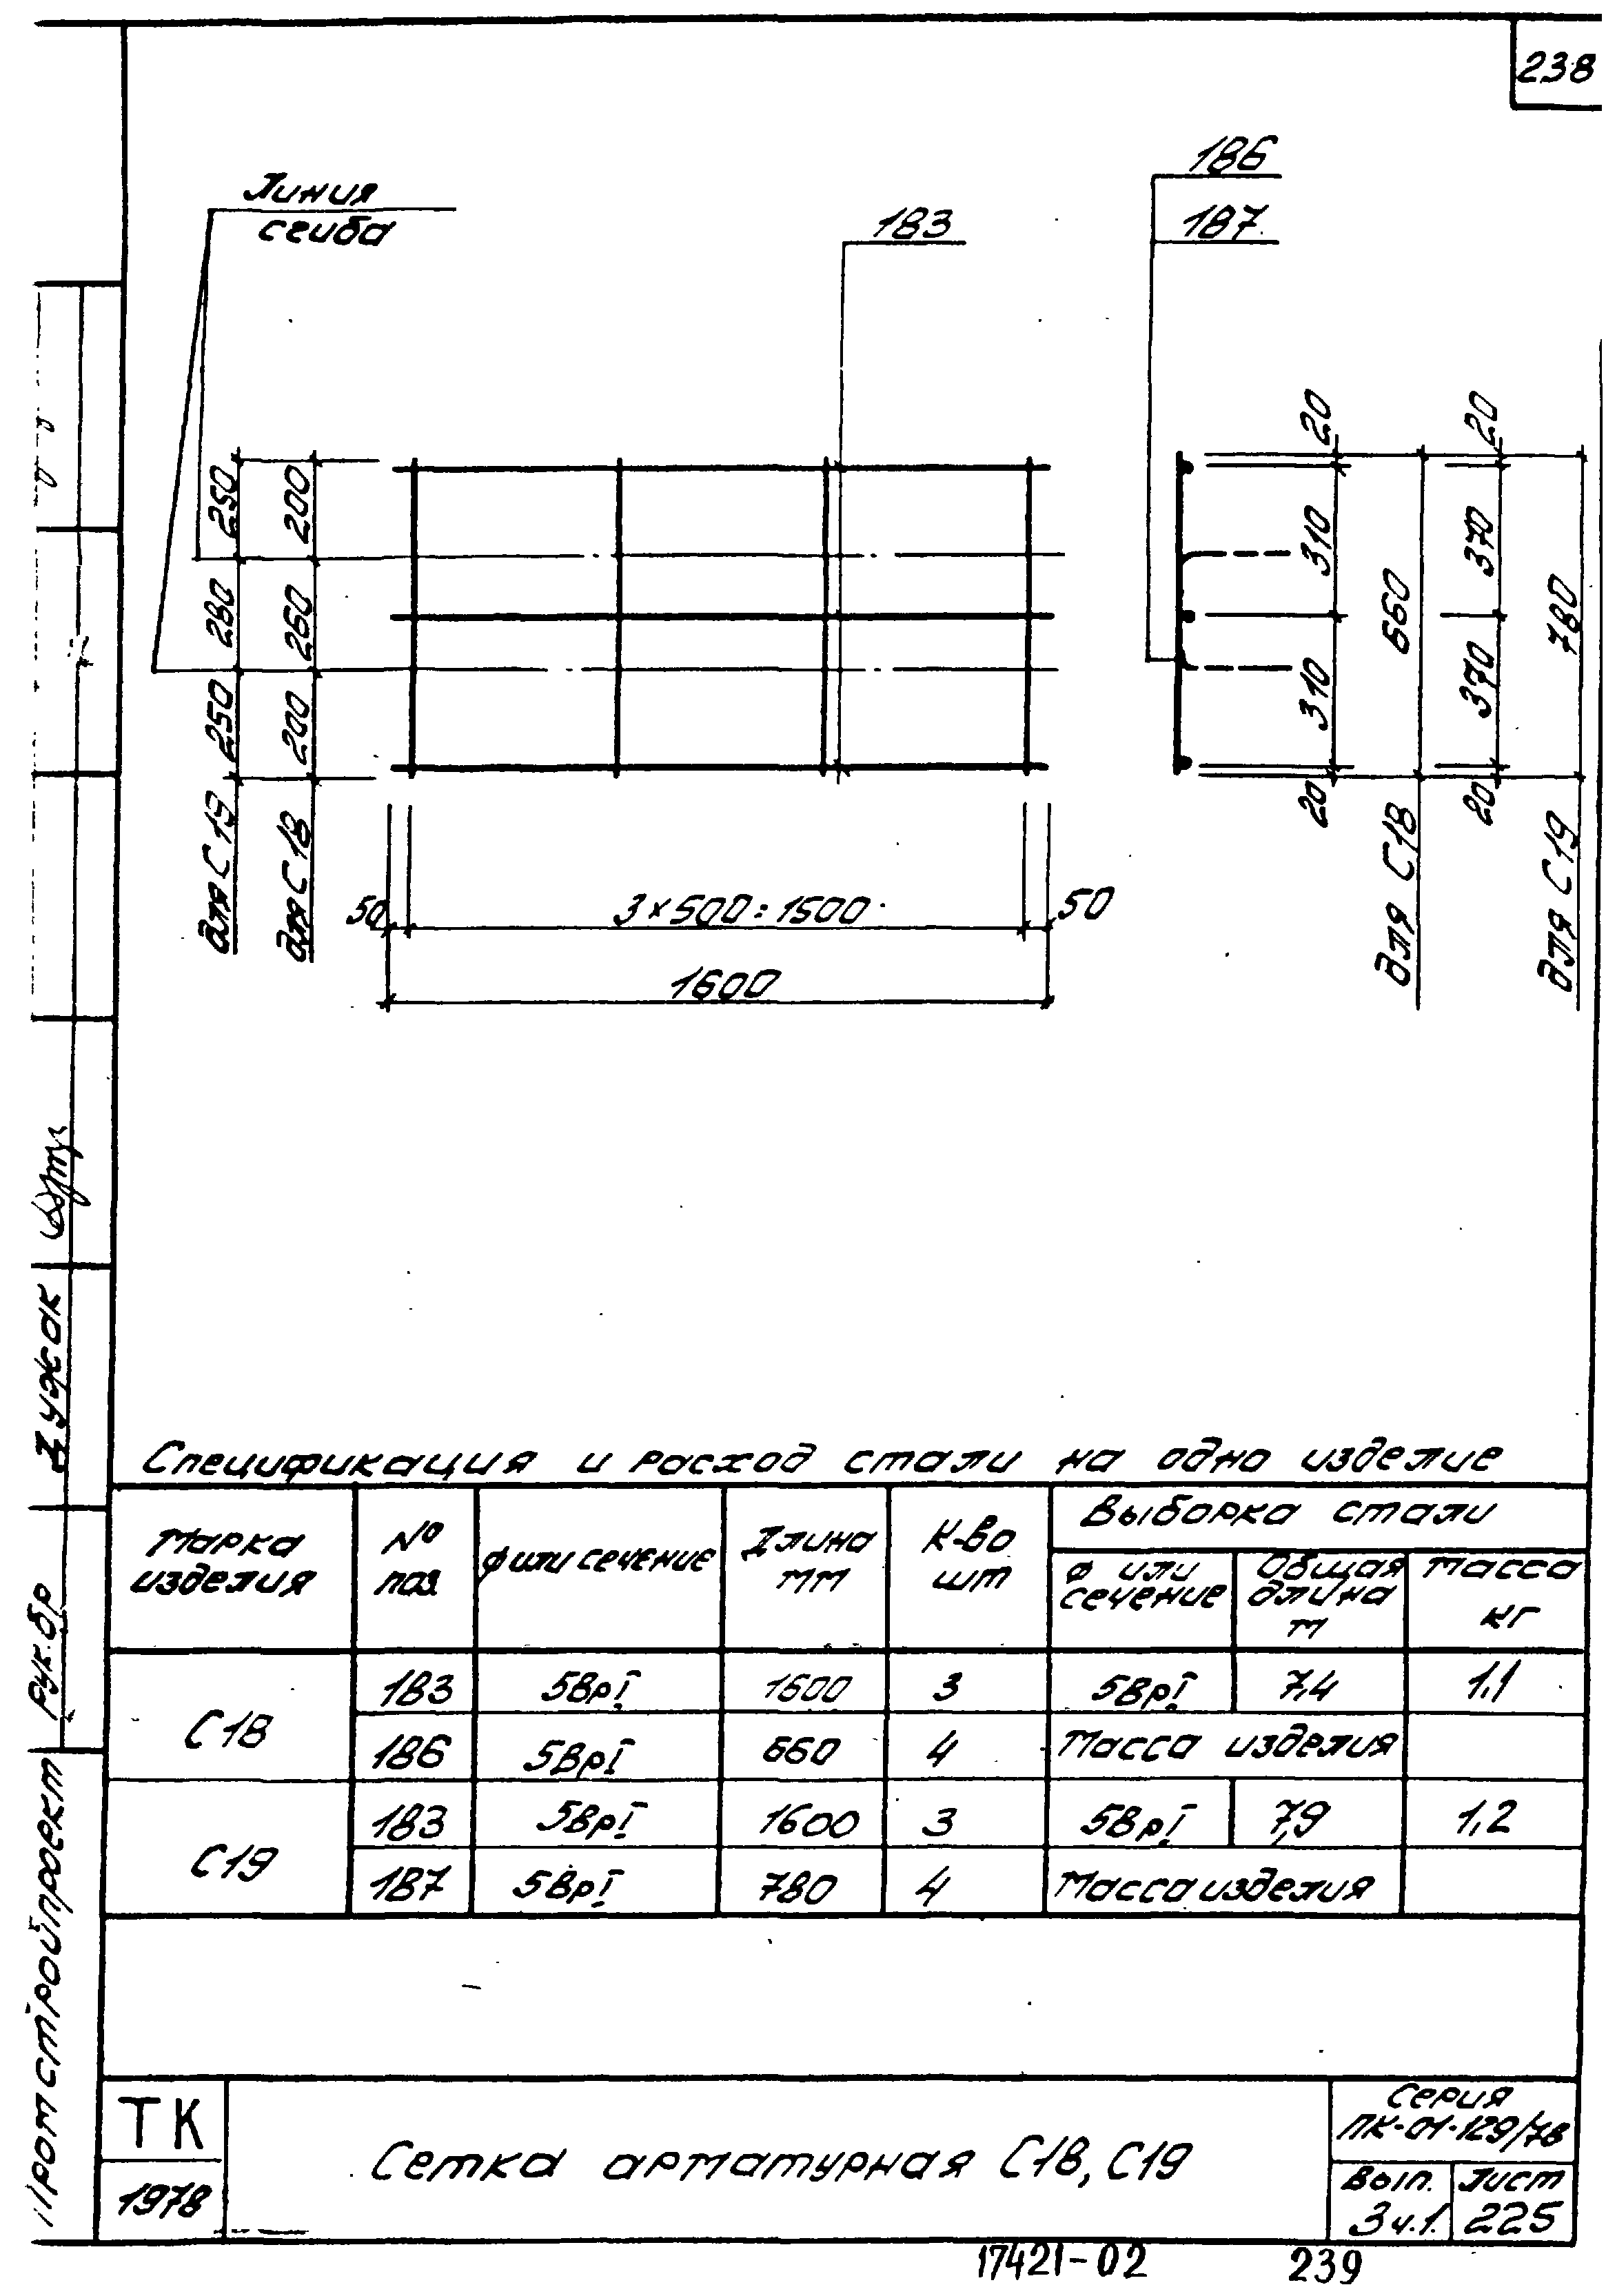 238
Линия
сгиба
183
186
187
250
280
250
для С19
200
260
200
для С18
50
3×500=1500
50
1600
20
310
310
20
660
для С18
20
370
370
20
780
для С19
Спецификация и расход стали на одно изделие
Марка изделия
№ поз
φ или сечение
Длина мм
К-во шт
Выборка стали
φ или сечение
Общая длина м
Масса кг
С18
183 5ВрI 1600 3 5ВрI 7,4 1,1
186 5ВрI 660 4 Масса изделия
С19
183 5ВрI 1600 3 5ВрI 7,9 1,2
187 5ВрI 780 4 Масса изделия
ТК
1978
Сетка арматурная С18, С19
Серия
ПК-01-129/78
Вып.
3ч.1.
Лист
225
17421-02
239
Промстройпроект
Рук.бр
Дужак